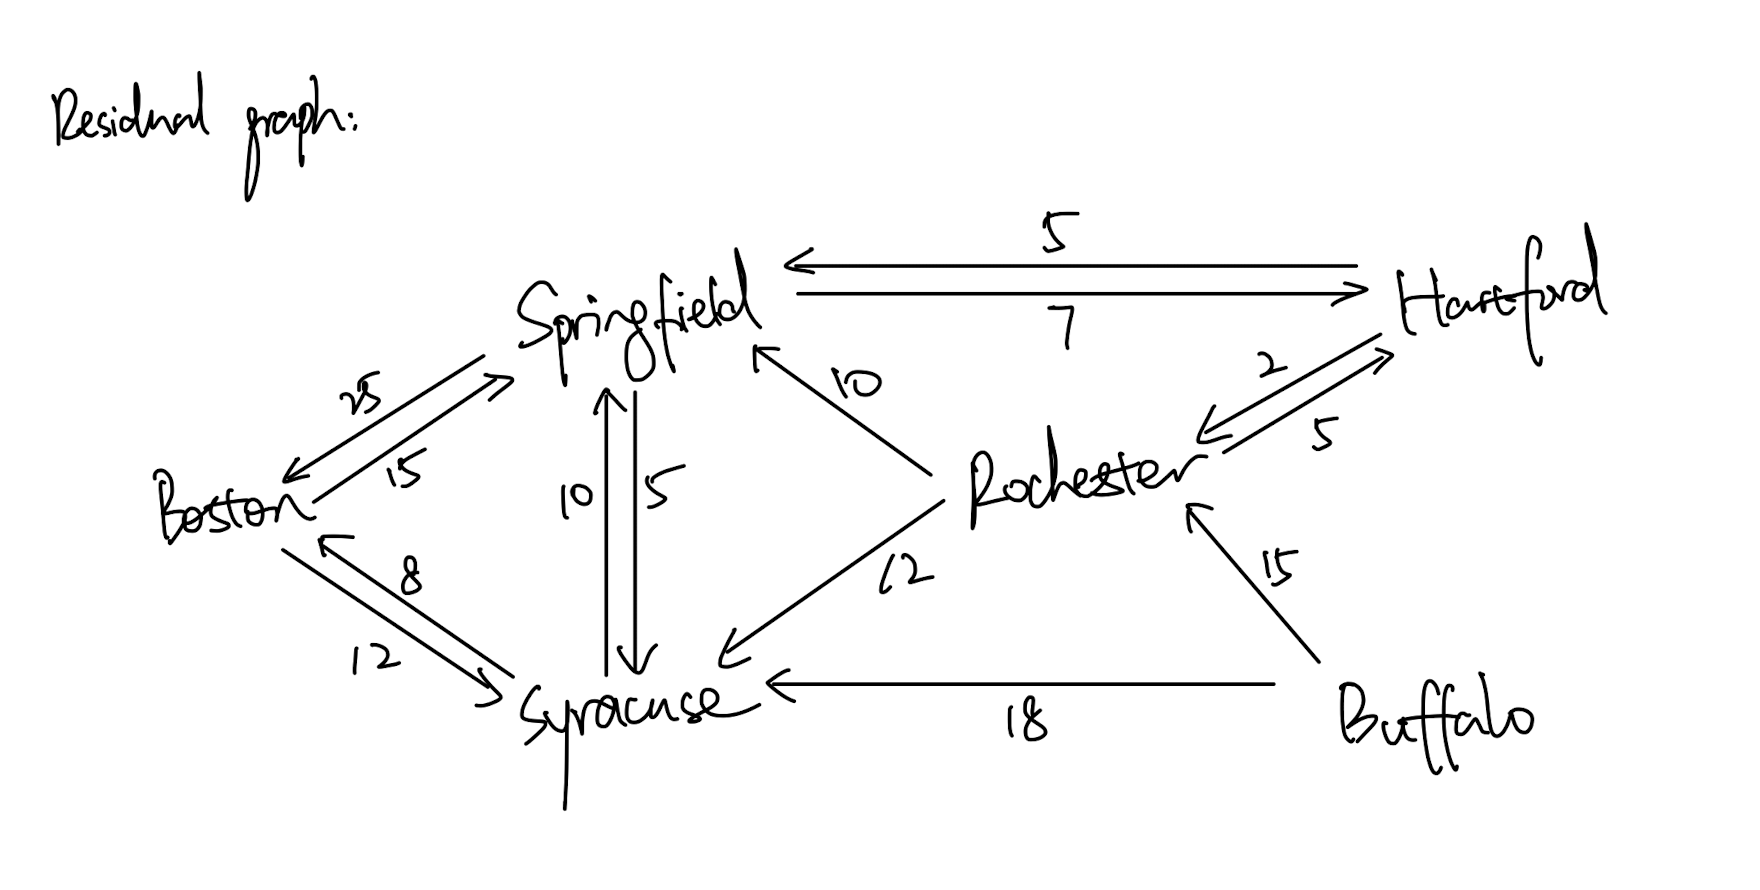 Residual graph:
5
Springfield
Hartford
7
25
10
2
15
5
Boston
10
5
Rochester
8
12
15
12
Syracuse
18
Buffalo